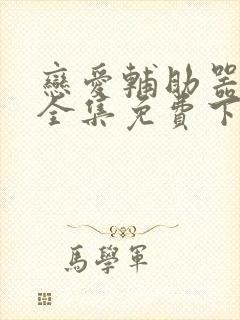 戀愛輔助器
全集免費下
馬學軍